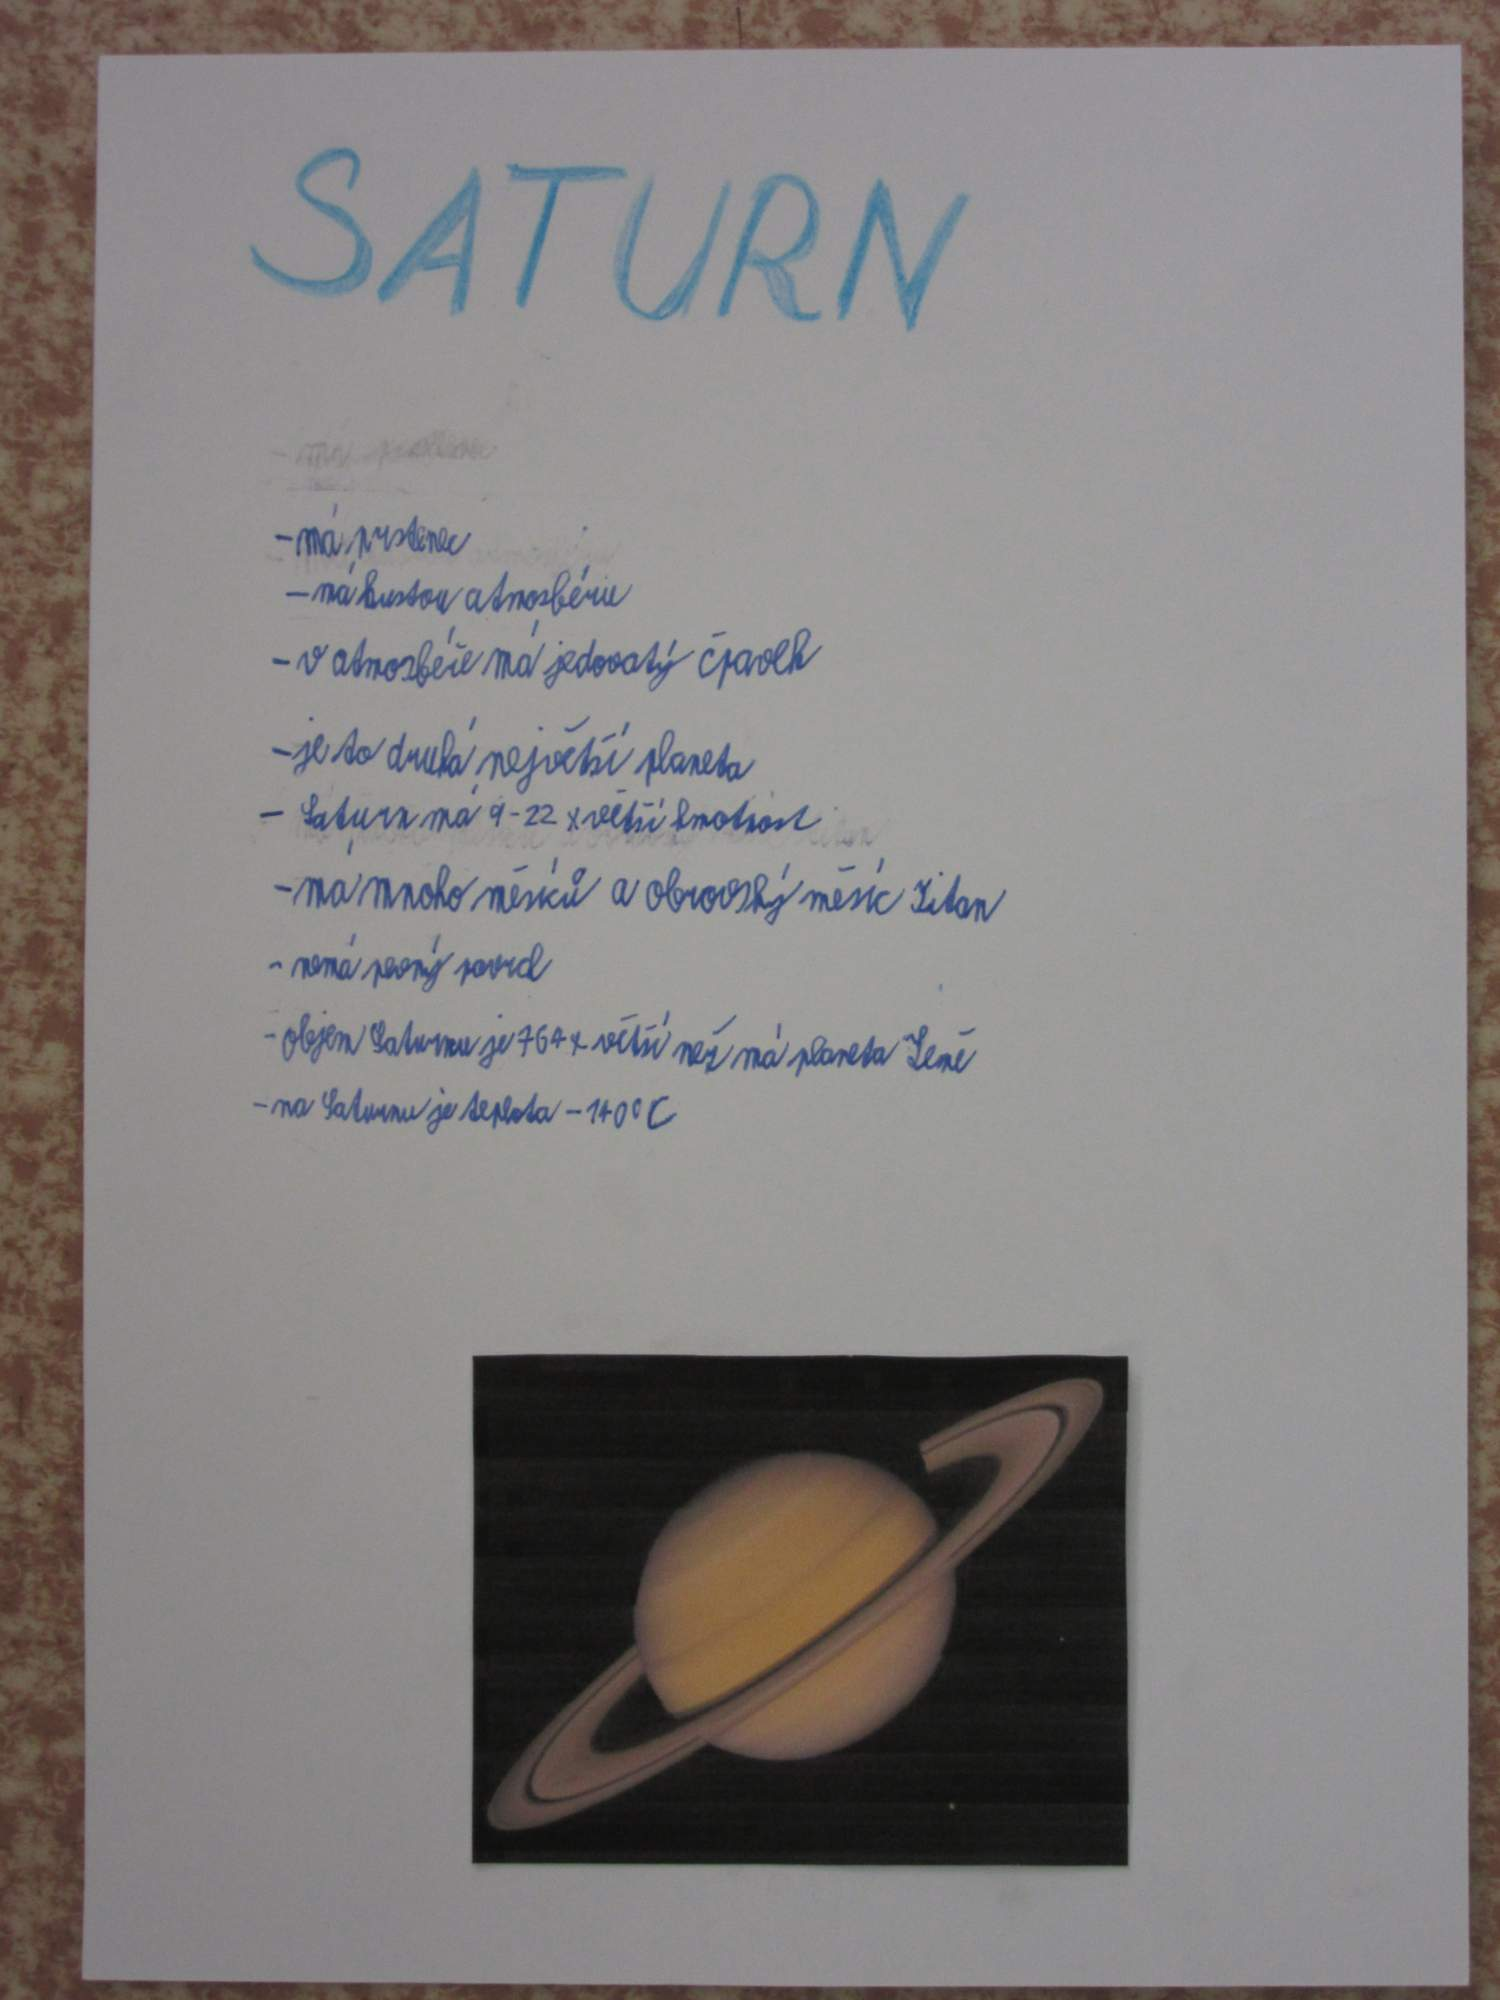 SATURN
- má prstenec
- má hustou atmosbériu
- v atmosbéře má jedovatý čpavek
- je to druhá největší planeta
- Saturn má 9-22 x větší hmotnost
- má mnoho měsíců a obrovský měsíc Titan
- nemá pevný povrch
- objem Saturnu je 764x větší než má planeta Země
- na Saturnu je teplota - 140°C